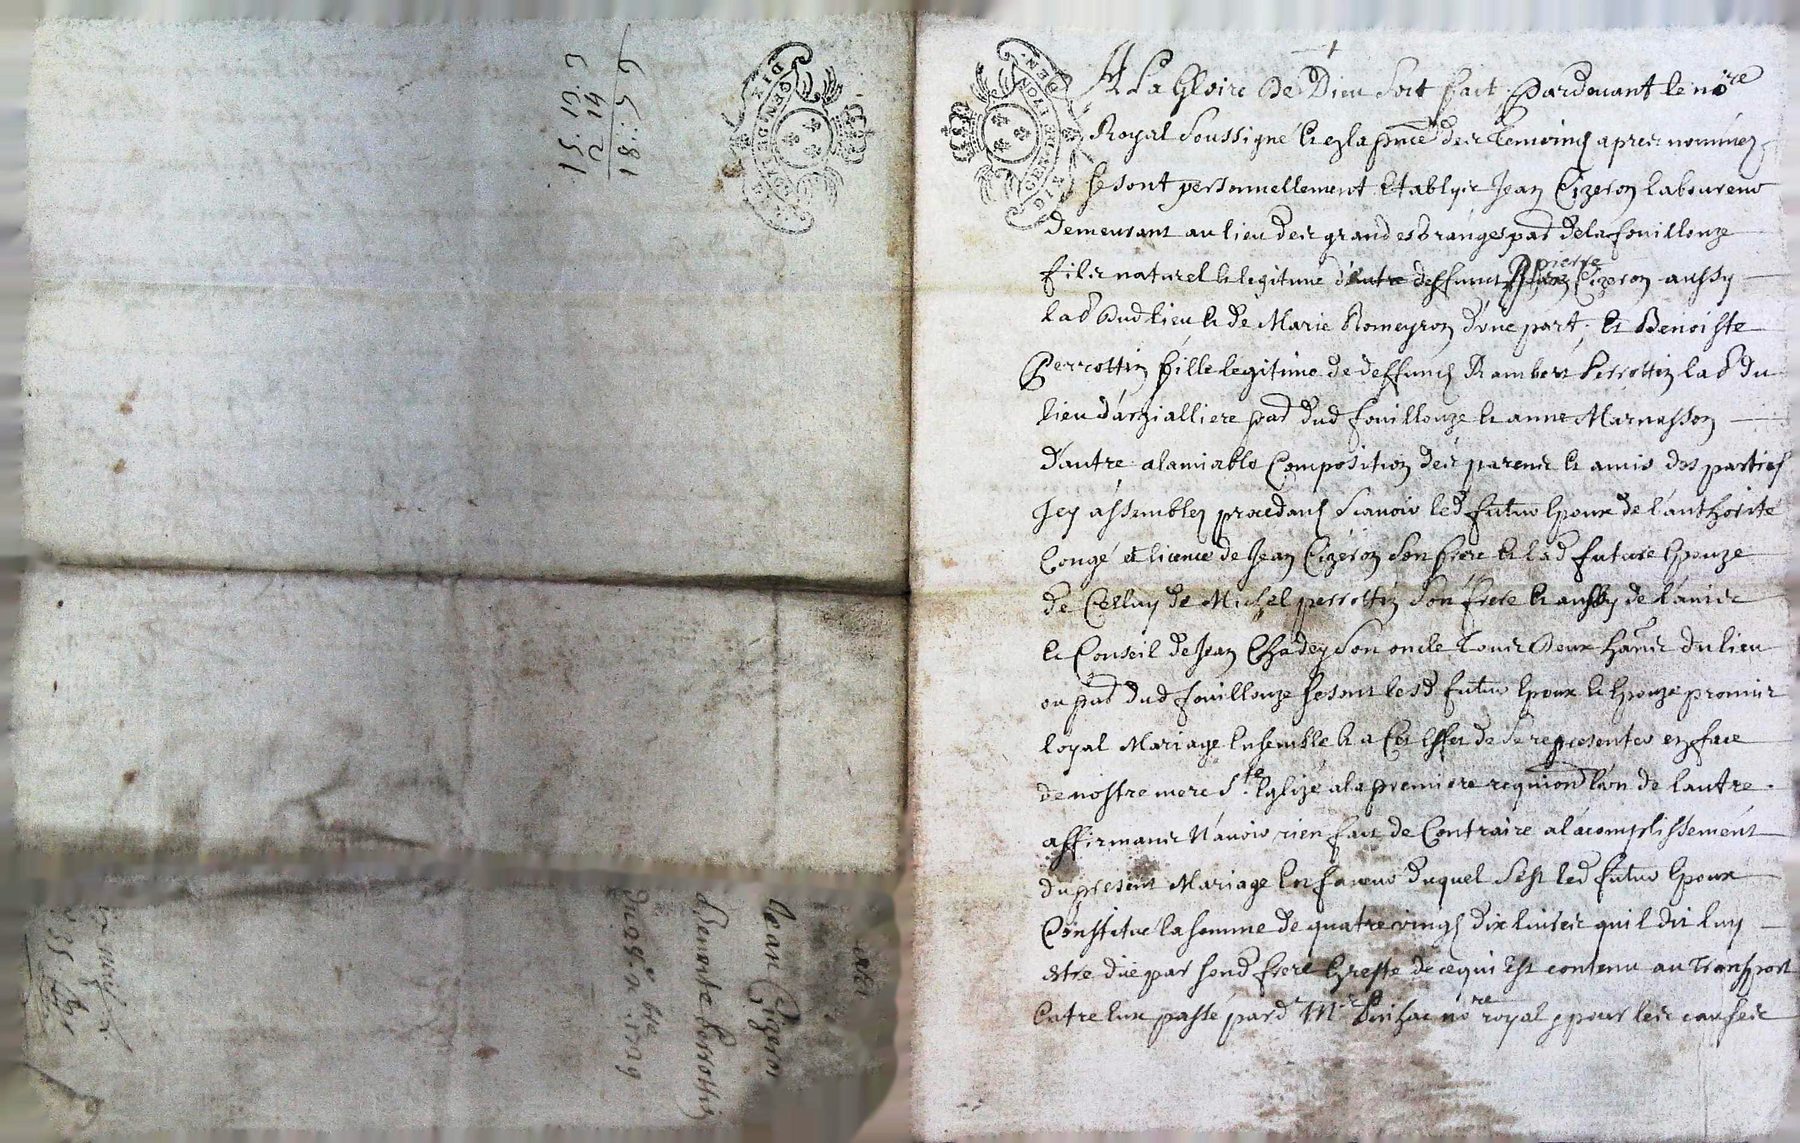 15. 13. 3
2 14
18: 7 9
A La Gloire De Dieu soit fait, Pardevant le no.re
Royal soussigné & en la pnce des Temoins apres nommez
se sont personnellement Etablyes Jean Cizeron laboureur
demeurant au lieu des granges par de la fouillouze
fils naturel & legitime deffunct pierre Cizeron aussy
lab dud lieu & de Marie Romeyron d'une part, & Benoiste
Perrottin fille legitime de deffunct Rambert Perrottin lab du
lieu par dud fouillouze & anne Marnasson
d'autre a lamiable Composition des parens & amis des parties
Icy assemblez procedans scavoir led futur Epoux de l'authorité
Congé et licence de Jean Cizeron son frere & lad future Epouze
de Celluy de Michel perrottin son frere & aussy de l'avis
& Conseil de Jean Chadey son oncle Tous Deux hans du lieu
ou par dud fouillouze se sont lesd futur Epoux & Epouze promis
loyal Mariage Ensemble & a Cet Effet de se representer en face
de nostre mere S.te Eglize a la premiere requion l'un de lautre .
affirmans N'avoir rien fait de Contraire al acomplissement
du present Mariage En faveur duquel s'est led futur Epoux
Constitué la somme de quatre vings dix livres quil dit luy
estre düe par sond frere de ce qui Est contenu au Transport
Entre Eux passé pard M.r no.re royal pour les causes
Jean Cizeron
Benoiste Perrottin
du 28 9.bre 1729